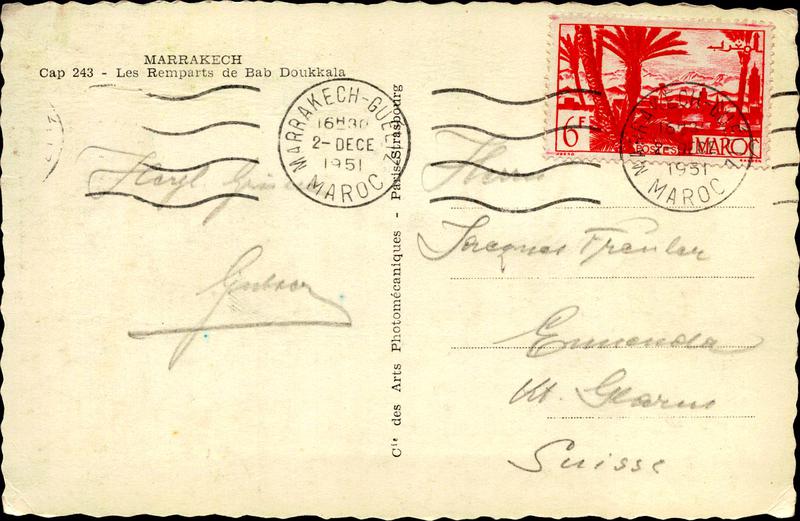 MARRAKECH
Cap 243 - Les Remparts de Bab Doukkala
MARRAKECH-GUELIZ
16H30
2-DECE
1951
MAROC
Cie des Arts Photomécaniques - Paris-Strasbourg
المغرب
6F
POSTES
MAROC
MARRAKECH-GUELIZ
1951
MAROC
Herrn
Jacques Freuler
Ennenda
Kt. Glarus
Suisse